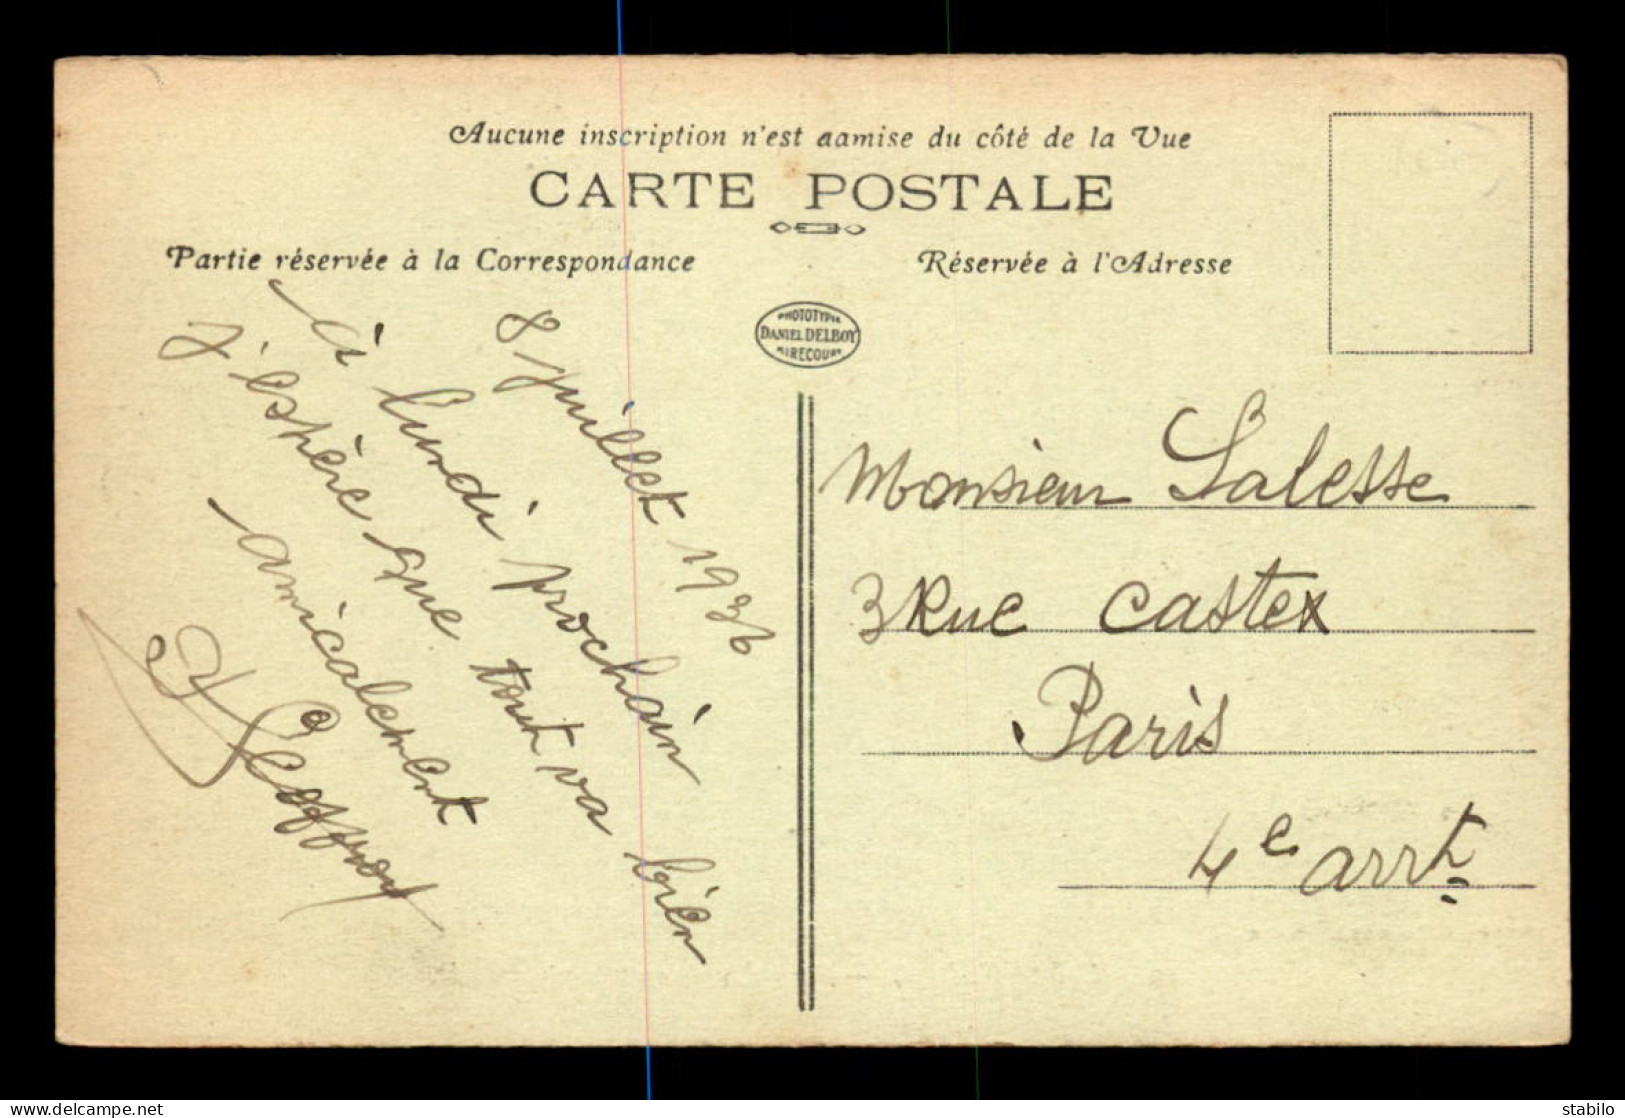 Aucune inscription n'est aamise du côté de la Vue
CARTE POSTALE
Partie réservée à la Correspondance
Réservée à l'Adresse
PHOTOTYPIE
DANIEL DELBOY
MIRECOURT
8 juillet 1936
à lundi prochain
j'éspère que tout va bien
amicalement
Monsieur Salesse
3 Rue Castex
Paris
4e arrt
stabilo